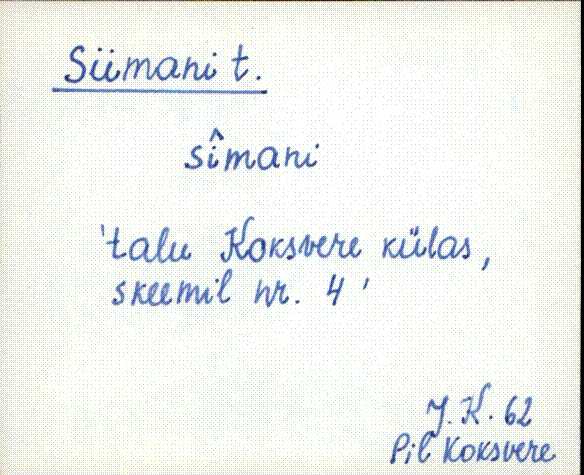 Siimani t.
sîmani
'talu Koksvere külas,
skeemil nr. 4'
J. K. 62
Pil Koksvere